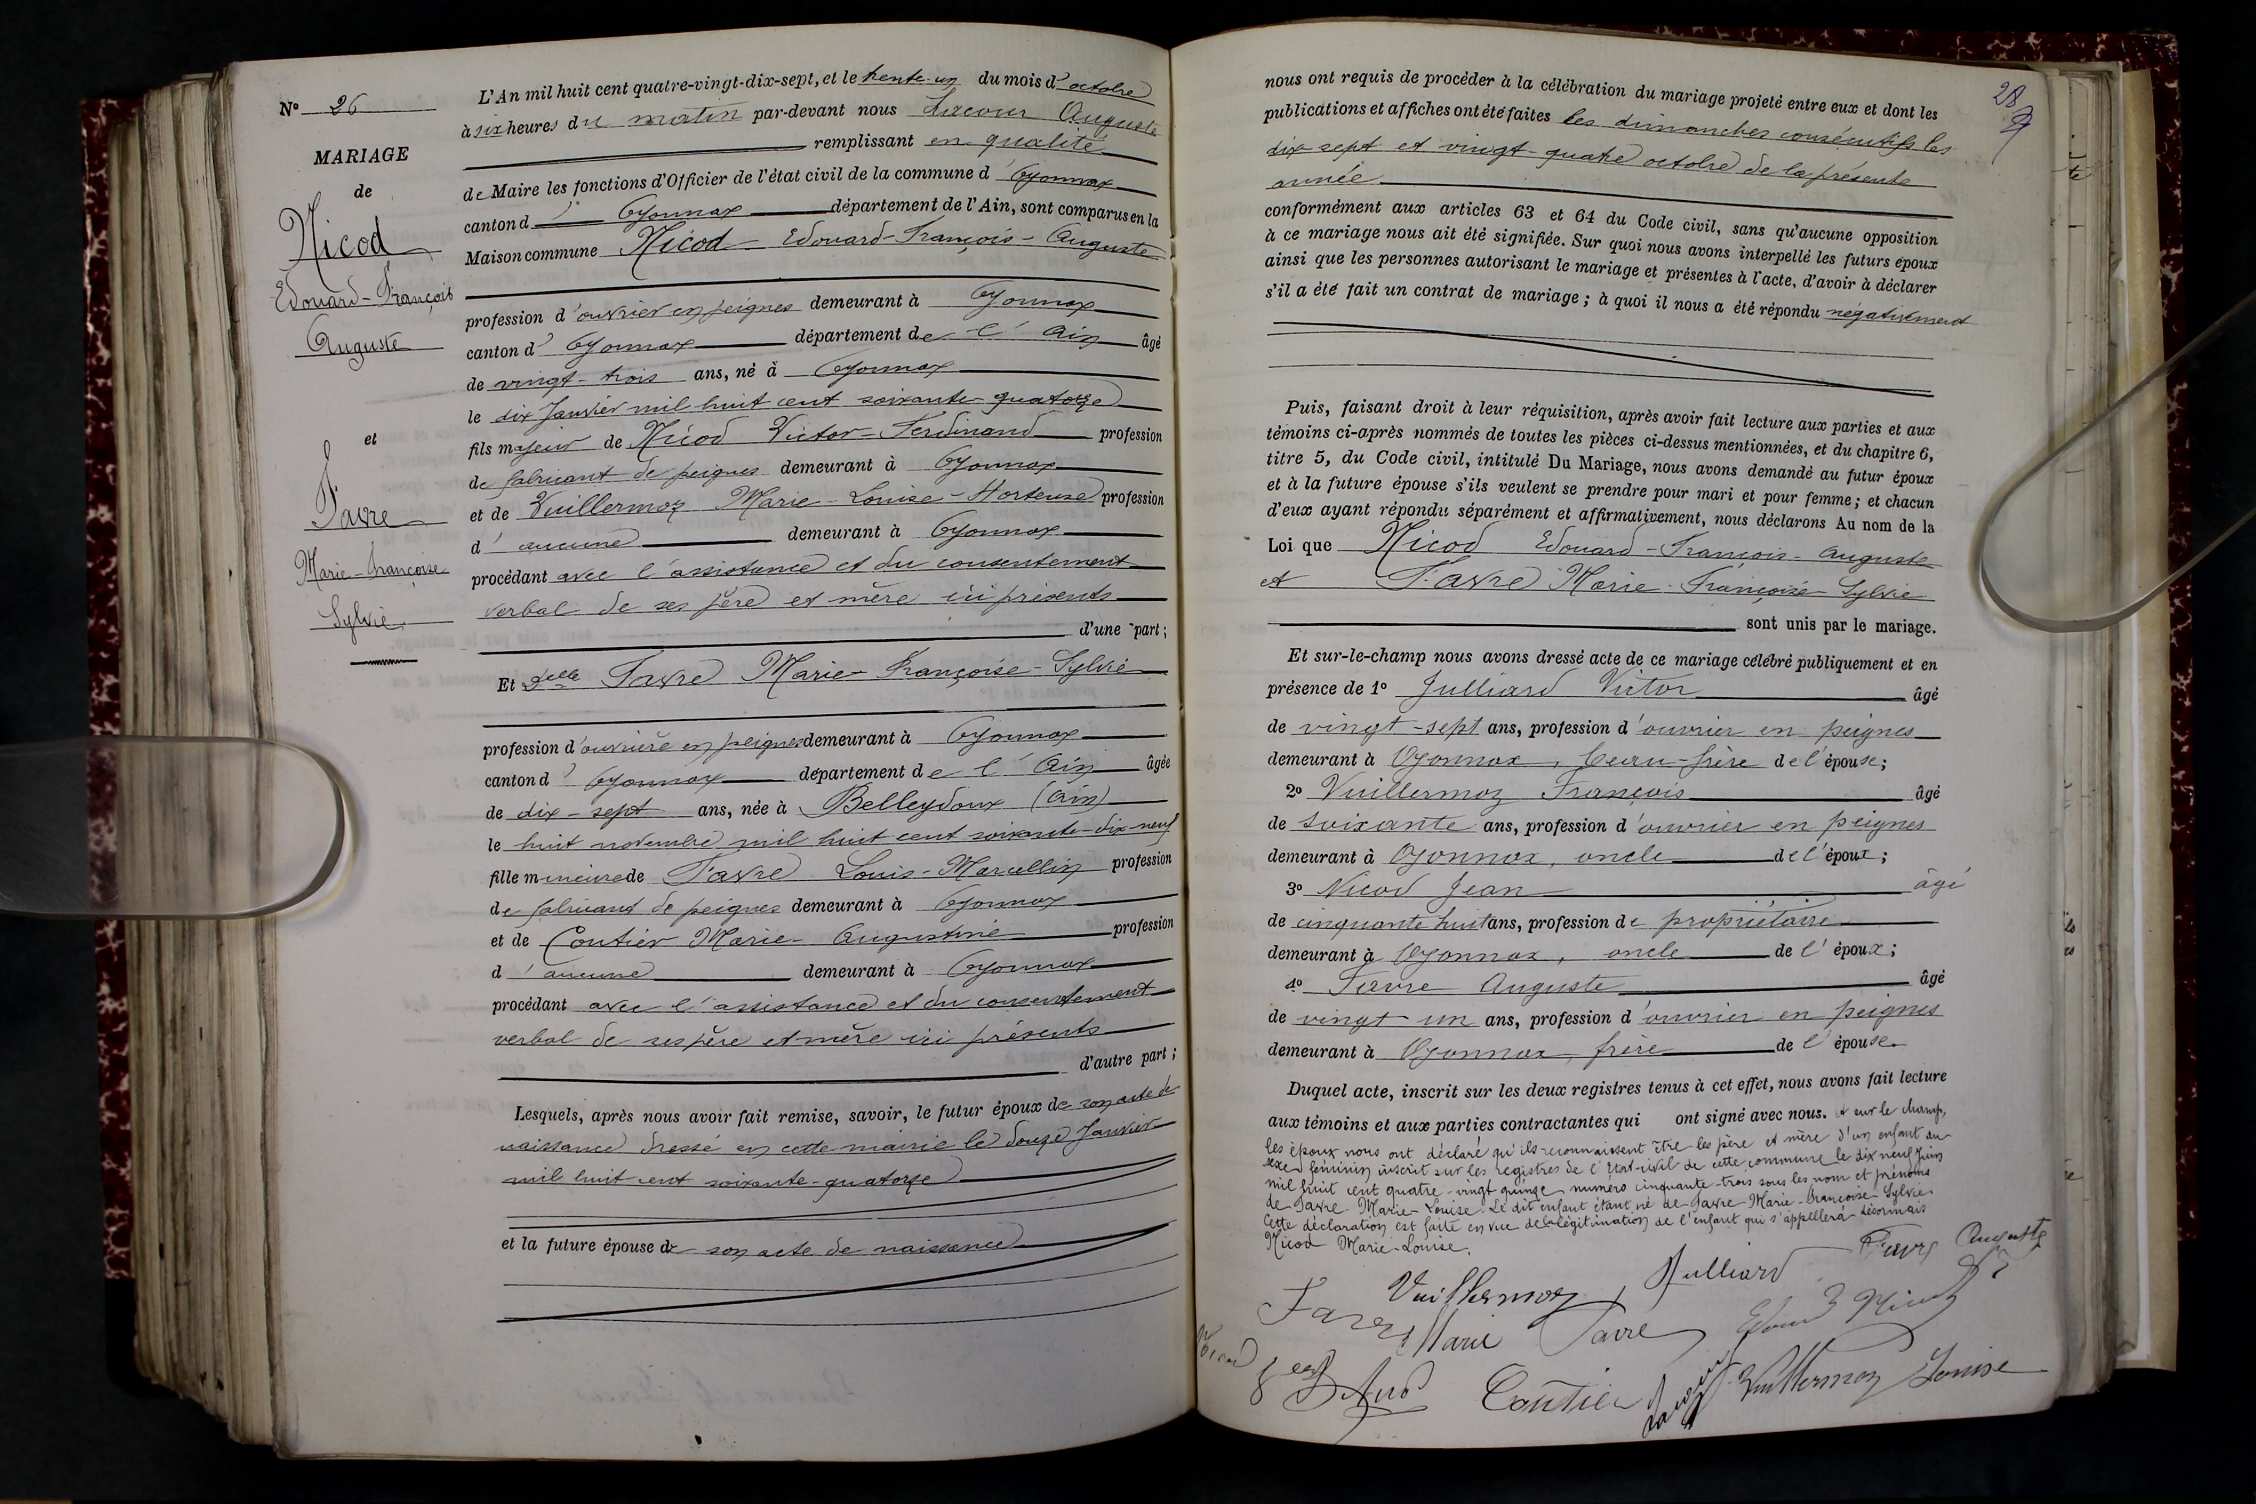 N° 26
MARIAGE
de
Nicod
Edouard-François
Auguste
et
Favre
Marie-Françoise
Sylvie
L'An mil huit cent quatre-vingt-dix-sept, et le trente-un du mois d'octobre
à six heures du matin par-devant nous Auguste
remplissant en qualité
de Maire les fonctions d'Officier de l'état civil de la commune d'Oyonnax
canton d'Oyonnax département de l'Ain, sont comparus en la
Maison commune Nicod Edouard-François-Auguste
profession d'ouvrier en peignes demeurant à Oyonnax
canton d'Oyonnax département de l'Ain âgé
de vingt-trois ans, né à Oyonnax
le dix Janvier mil huit cent soixante-quatorze
fils majeur de Nicod Victor-Ferdinand profession
de fabricant de peignes demeurant à Oyonnax
et de Vuillermoz Marie-Louise-Hortense profession
d'aucune demeurant à Oyonnax
procédant avec l'assistance et du consentement
verbal de ses père et mère ici présents
d'une part;
Et Delle Favre Marie-Françoise-Sylvie
profession d'ouvrière en peignes demeurant à Oyonnax
canton d'Oyonnax département de l'Ain âgée
de dix-sept ans, née à Belleydoux (Ain)
le huit novembre mil huit cent soixante-dix-neuf
fille mineure de Favre Louis-Marcellin profession
de fabricant de peignes demeurant à Oyonnax
et de Coutier Marie-Augustine profession
d'aucune demeurant à Oyonnax
procédant avec l'assistance et du consentement
verbal de ses père et mère ici présents
d'autre part;
Lesquels, après nous avoir fait remise, savoir, le futur époux de son acte de
naissance dressé en cette mairie le douze Janvier
mil huit cent soixante-quatorze
et la future épouse de son acte de naissance
28
nous ont requis de procéder à la célébration du mariage projeté entre eux et dont les
publications et affiches ont été faites les dimanches consécutifs les
dix sept et vingt-quatre octobre de la présente
année
conformément aux articles 63 et 64 du Code civil, sans qu'aucune opposition
à ce mariage nous ait été signifiée. Sur quoi nous avons interpellé les futurs époux
ainsi que les personnes autorisant le mariage et présentes à l'acte, d'avoir à déclarer
s'il a été fait un contrat de mariage; à quoi il nous a été répondu négativement
Puis, faisant droit à leur réquisition, après avoir fait lecture aux parties et aux
témoins ci-après nommés de toutes les pièces ci-dessus mentionnées, et du chapitre 6,
titre 5, du Code civil, intitulé Du Mariage, nous avons demandé au futur époux
et à la future épouse s'ils veulent se prendre pour mari et pour femme; et chacun
d'eux ayant répondu séparément et affirmativement, nous déclarons Au nom de la
Loi que Nicod Edouard-François-Auguste
et Favre Marie-Françoise-Sylvie
sont unis par le mariage.
Et sur-le-champ nous avons dressé acte de ce mariage célébré publiquement et en
présence de 1° Julliard Victor âgé
de vingt-sept ans, profession d'ouvrier en peignes
demeurant à Oyonnax, beau-frère de l'épouse;
2° Vuillermoz François âgé
de soixante ans, profession d'ouvrier en peignes
demeurant à Oyonnax, oncle de l'époux;
3° Nicod Jean âgé
de cinquante huit ans, profession de propriétaire
demeurant à Oyonnax, oncle de l'époux;
4° Favre Auguste âgé
de vingt un ans, profession d'ouvrier en peignes
demeurant à Oyonnax, frère de l'épouse.
Duquel acte, inscrit sur les deux registres tenus à cet effet, nous avons fait lecture
aux témoins et aux parties contractantes qui ont signé avec nous. et sur le champ,
les époux nous ont déclaré qu'ils reconnaissent être les père et mère d'un enfant du
sexe féminin inscrit sur les registres de l'Etat-civil de cette commune le dix neuf Juin
mil huit cent quatre-vingt quinze numéro cinquante-trois sous les nom et prénoms
de Favre Marie-Louise. Le dit enfant étant né de Favre Marie-Françoise-Sylvie.
Cette déclaration est faite en vue de la légitimation de l'enfant qui s'appellera désormais
Nicod Marie-Louise.
Favre Auguste
Julliard
Vuillermoz
Favre
Marie Favre
Nicod
Coutier
Vuillermoz Louise